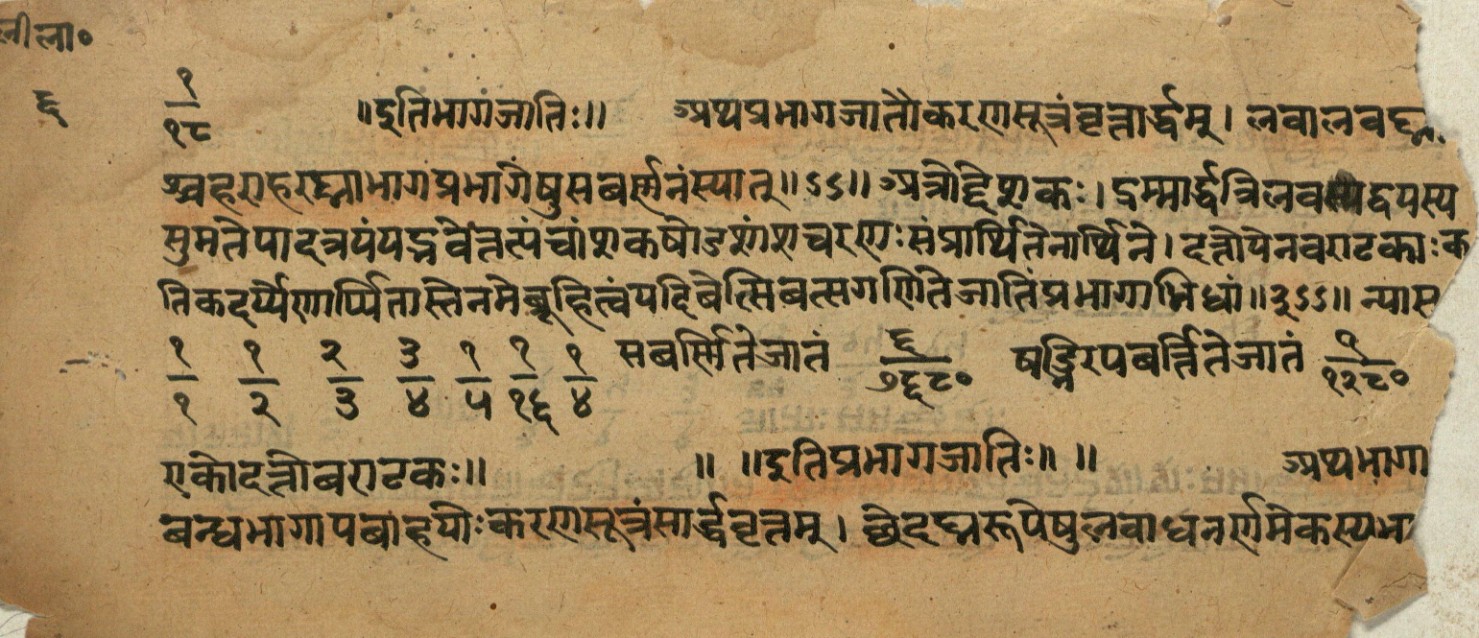 लीला०
६
१ ॥इतिभागजातिः॥ अथप्रभागजातौकरणसूत्रंवृत्तार्द्धम्। लवालवघ्ना
१८
श्चहराहरघ्नाभागप्रभागेषुसबर्णनंस्यात्॥ऽऽ॥ अत्रोद्देशकः। द्रम्मार्द्धत्रिलवस्यद्वयस्य
सुमतेपादत्रयंयद्भवेत्तत्पंचांशकषोडशांशचरणःसंप्रार्थितेनार्थिने। दत्तोयेनवराटकाःक
तिकदर्य्येणार्प्पितास्तेनमेब्रूहित्वंयदिबेत्सिबत्सगणितेजातिंप्रभागाभिधां॥३ऽऽ॥ न्यास
१ १ २ ३ १ १ १ सबर्णितेजातं ६ षड्भिरपबर्त्तितेजातं १
१ २ ३ ४ ५ १६ ४ ७६८० १२८०
एकोदत्तोबराटकः॥ ॥ ॥इतिप्रभागजातिः॥ ॥ अथभागा
बन्धभागापबाहयोःकरणसूत्रंसार्द्धवृत्तम्। छेदघ्नरूपेषुलवाधनर्णमेकस्यभा